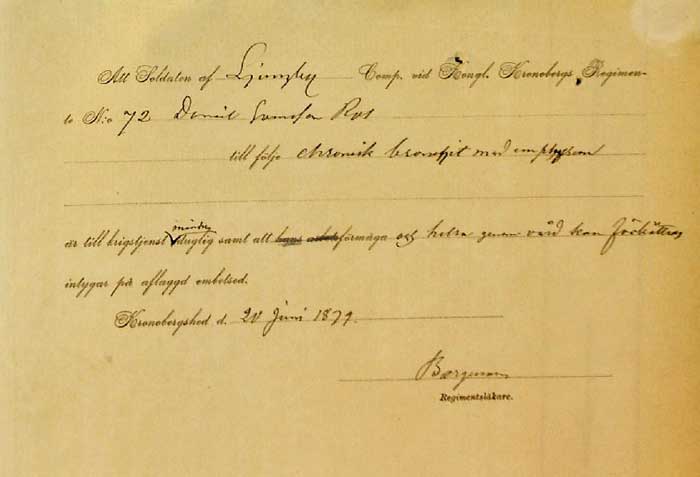 Att Soldaten af Ljungby Comp. vid Kongl. Kronobergs Regimen-
te N:o 72 Daniel Svensson Ros
till följe chronisk bronchit med emphysem
mindre
är till krigstjenst duglig samt att hans arbetsförmåga och helsa genom vård kan förbättras
intygar på aflaggd embetsed.
Kronobergshed d. Juni 1879.
Bergman
Regimentsläkare.